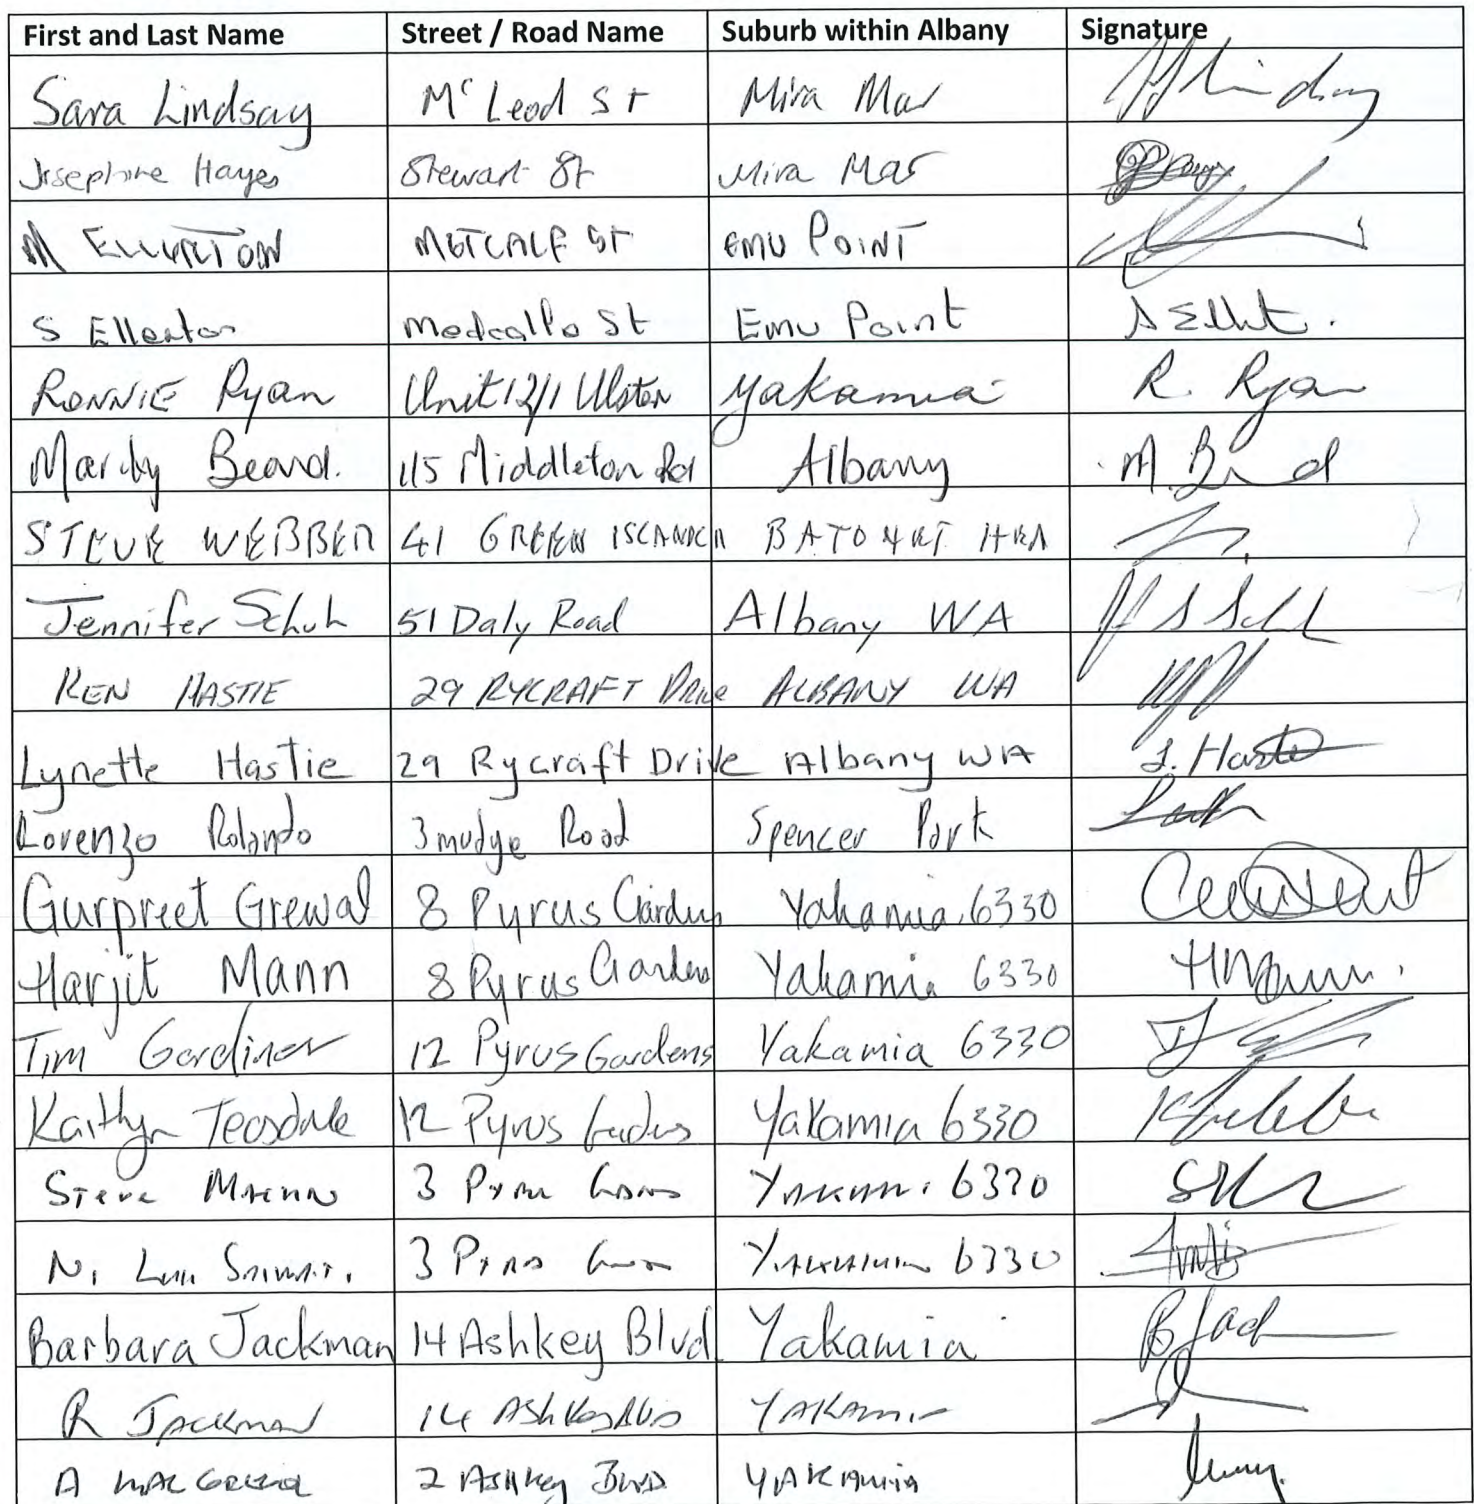 First and Last Name Street / Road Name Suburb within Albany Signature
Sara Lindsay Mc Leod St Mira Mar
Josephine Hayes Stewart St Mira Mar
M ELLERTON METCALF ST EMU POINT
S Ellerton Medcalfe St Emu Point
RONNIE Ryan Unit 12/1 Ulster Yakamia R. Ryan
Mandy Beard. 115 Middleton Rd Albany M. Beard
STEVE WEBBER 41 GREEN ISLAND
Jennifer Schuh 51 Daly Road Albany WA
KEN HASTIE 29 RYCRAFT Drive ALBANY WA
Lynette Hastie 29 Rycraft Drive Albany WA L. Hastie
Lorenzo Rolando 3 mudge Road Spencer Park
Gurpreet Grewal 8 Pyrus Gardens Yakamia 6330
Harjit Mann 8 Pyrus Gardens Yakamia 6330
Tim Gardiner 12 Pyrus Gardens Yakamia 6330
Kaitlyn Teasdale 12 Pyrus Gardens Yakamia 6330
Steve 3 Yakamia 6330
N. 3 Yakamia 6330
Barbara Jackman 14 Ashkey Blvd Yakamia
R JACKMAN 14 Yakamia
A 2 Ashkey Blvd YAKAMIA